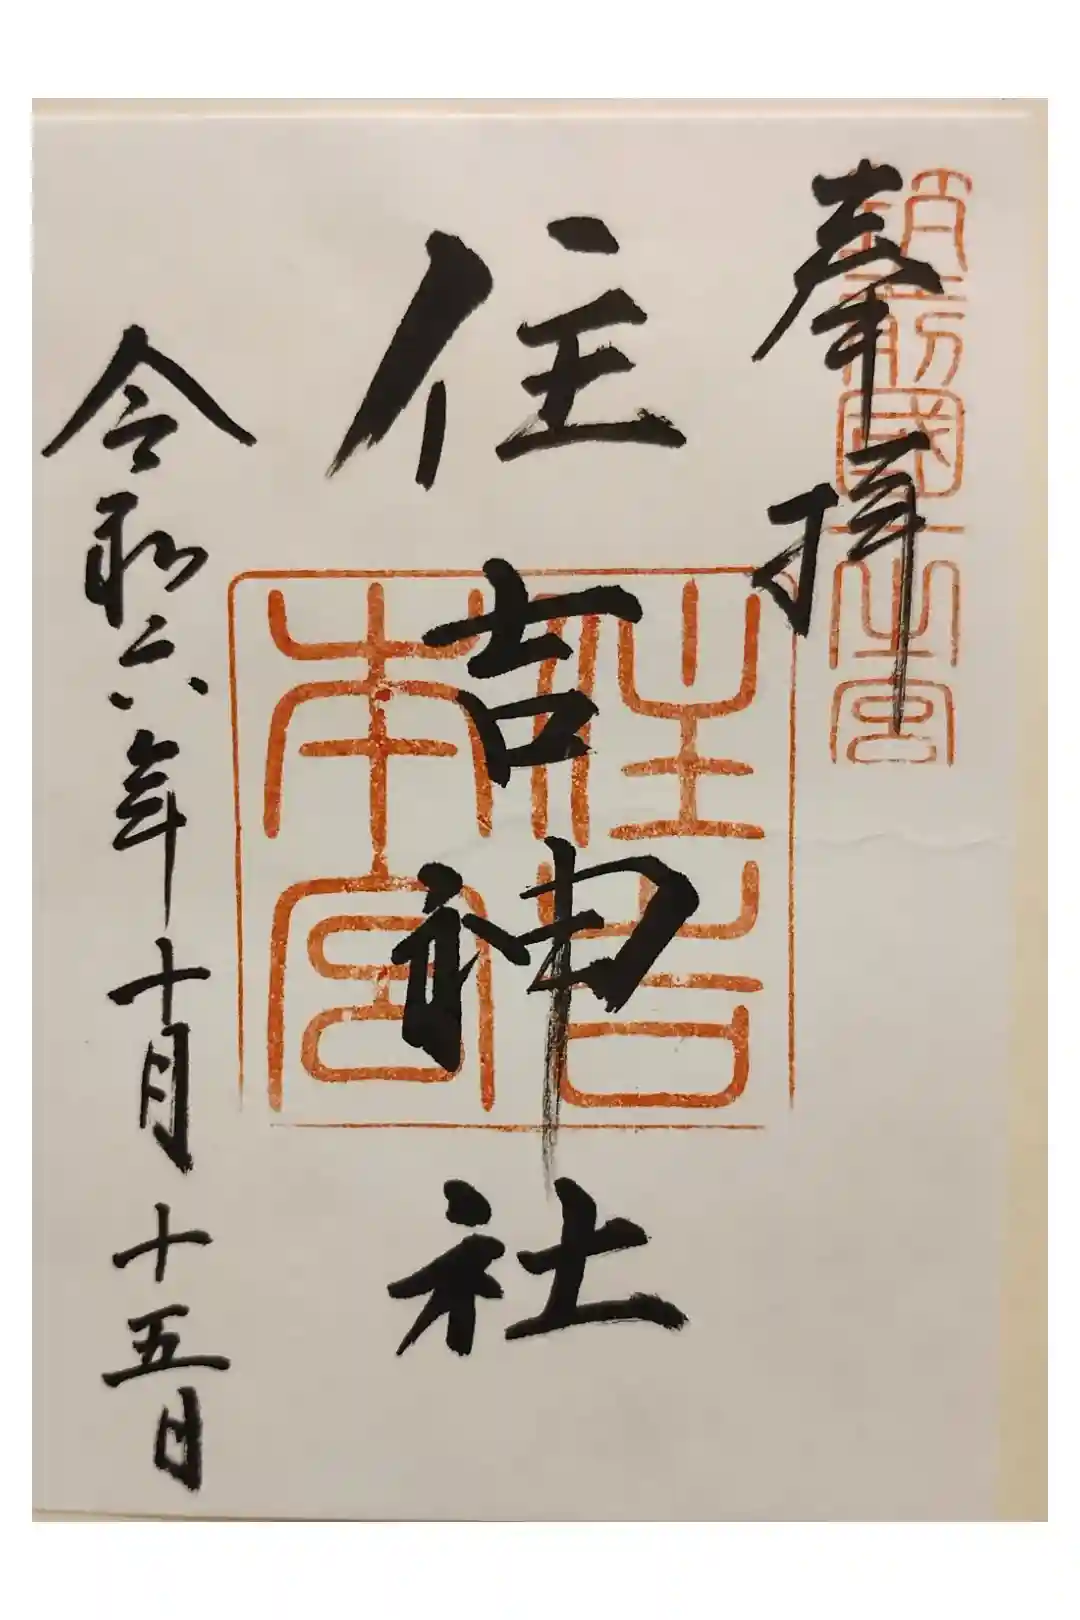 奉拝
筑前國一之宮
住吉神社
住吉
本宮
令和六年十月十五日